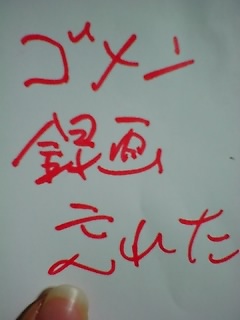 ゴメン
録画
忘れた